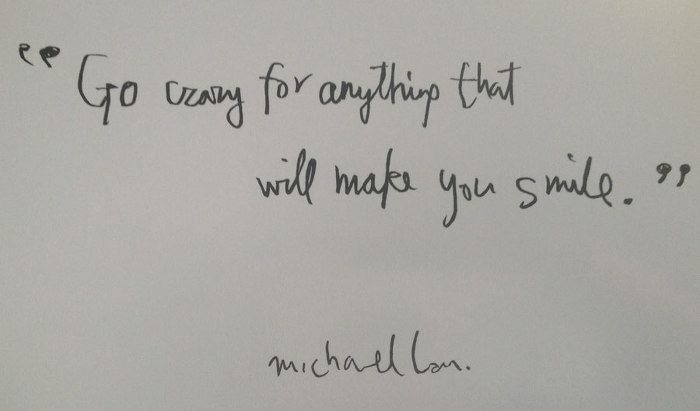 “Go crazy for anything that
will make you smile.”
michael